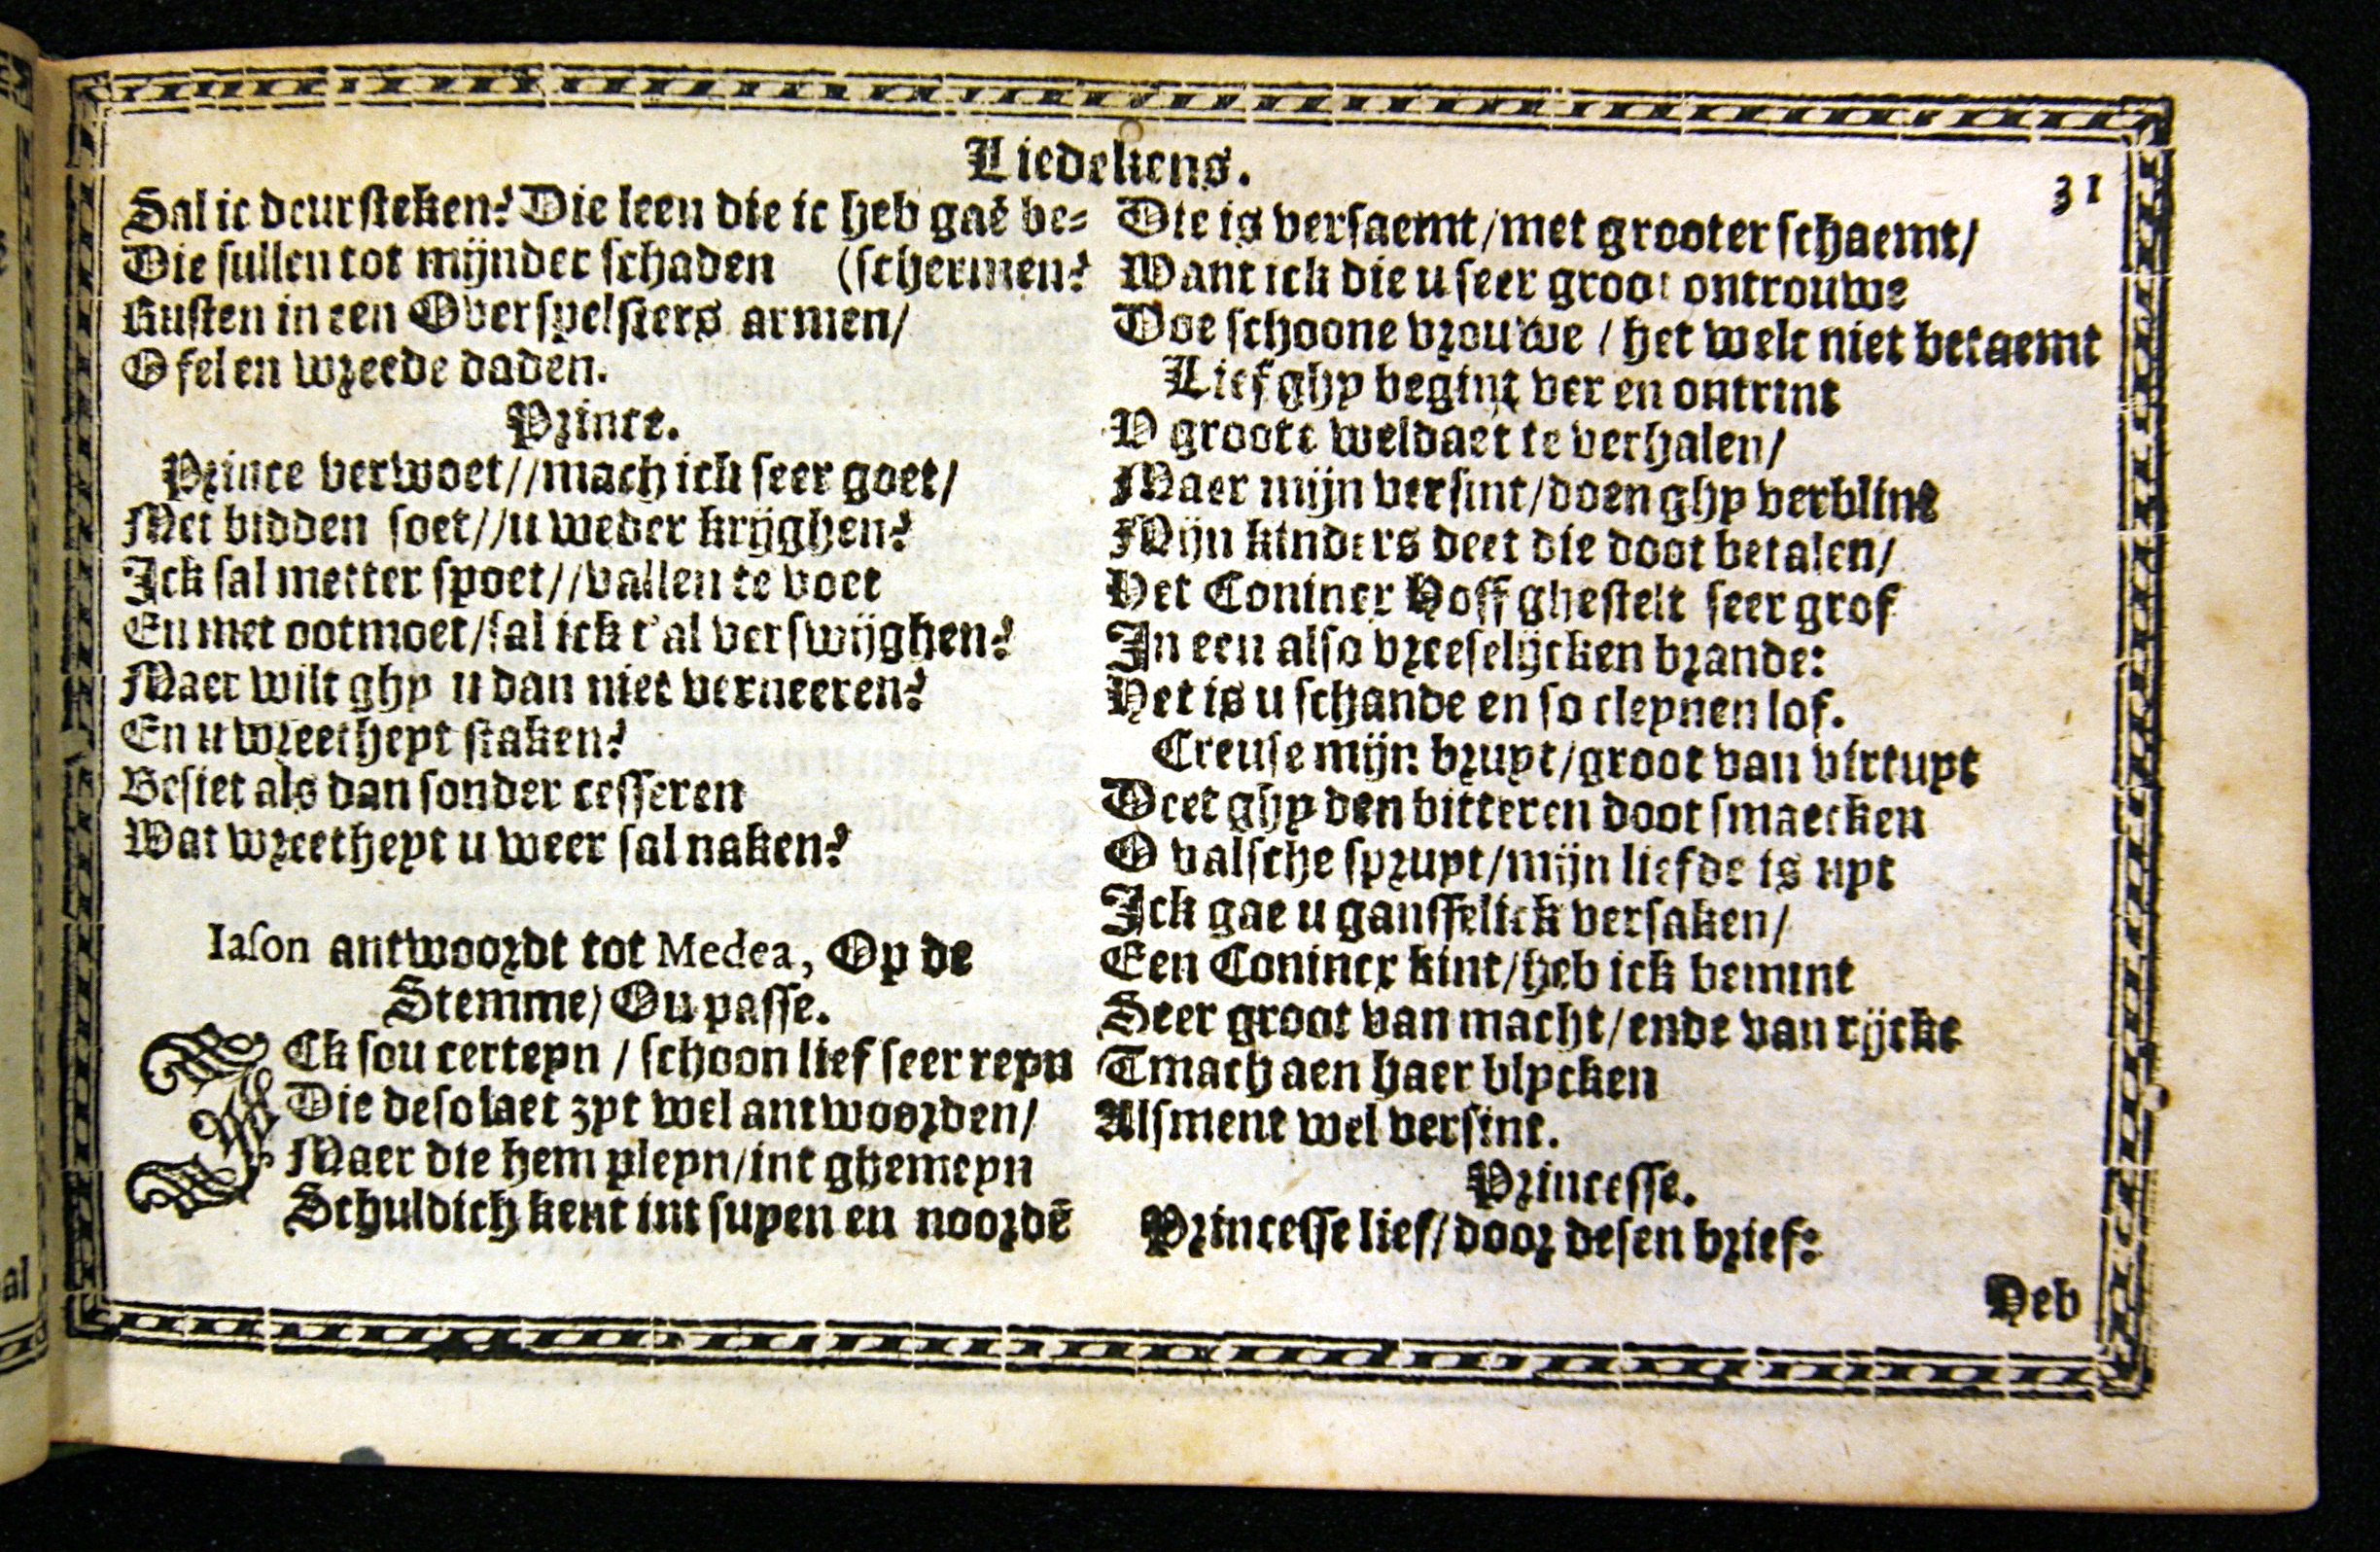 Liedekens.
31
Sal ic deursteken? Die leen die ic heb gaē be-
Die sullen tot mijnder schaden (schermen?
Rusten in een Overspelsters armen/
O fel en wreede daden.
Prince.
Prince verwoet//mach ick seer goet/
Met bidden soet//u weder krijghen?
Ick sal metter spoet//vallen te voet
En met ootmoet/sal ick t'al verswijghen?
Maer wilt ghy u dan niet verneeren?
En u wreetheyt staken?
Besiet als dan sonder cesseren
Wat wreetheyt u weer sal naken?
Iason antwoordt tot Medea, Op de
Stemme/ Ou passe.
ICk sou certeyn / schoon lief seer reyn
Die desolaet zyt wel antwoorden/
Maer die hem pleyn/int ghemeyn
Schuldich kent int suyen en noordē
Die is versaemt/met grooter schaemt/
Want ick die u seer groot ontrouwe
Doe schoone vrouwe / het welc niet betaemt
Lief ghy begint ver en ontrint
V groote weldaet te verhalen/
Maer mijn versint/doen ghy verblint
Mijn kinders deet die doot betalen/
Het Conincx Hoff ghestelt seer grof
In een also vreeselijcken brande:
Het is u schande en so cleynen lof.
Creuse mijn bruyt/groot van virtuyt
Deet ghy den bitteren doot smaecken
O valsche spruyt/mijn liefde is uyt
Ick gae u gansselick versaken/
Een Conincx kint/heb ick bemint
Seer groot van macht/ende van rijcke
Tmach aen haer blycken
Alsment wel versint.
Princesse.
Princesse lief/door desen brief:
Heb
al